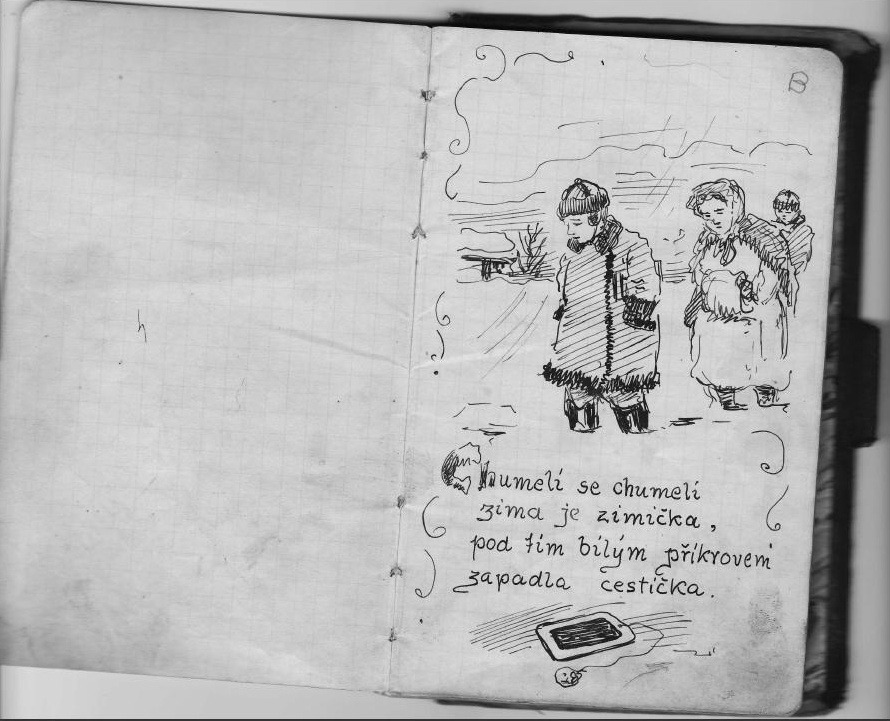 B
Chumelí se chumelí
zima je zimička,
pod tím bílým příkrovem
zapadla cestička.